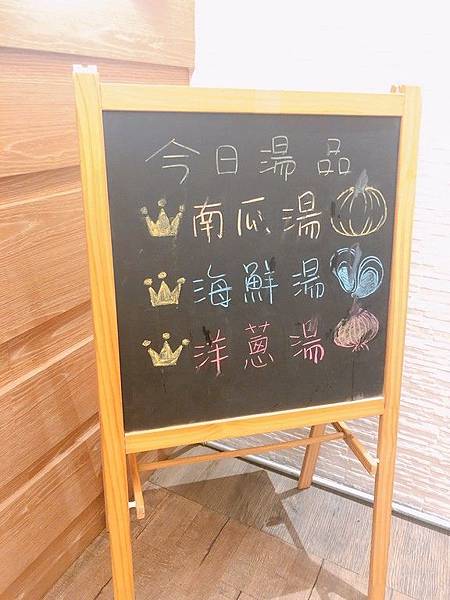 今日湯品
南瓜湯
海鮮湯
洋蔥湯